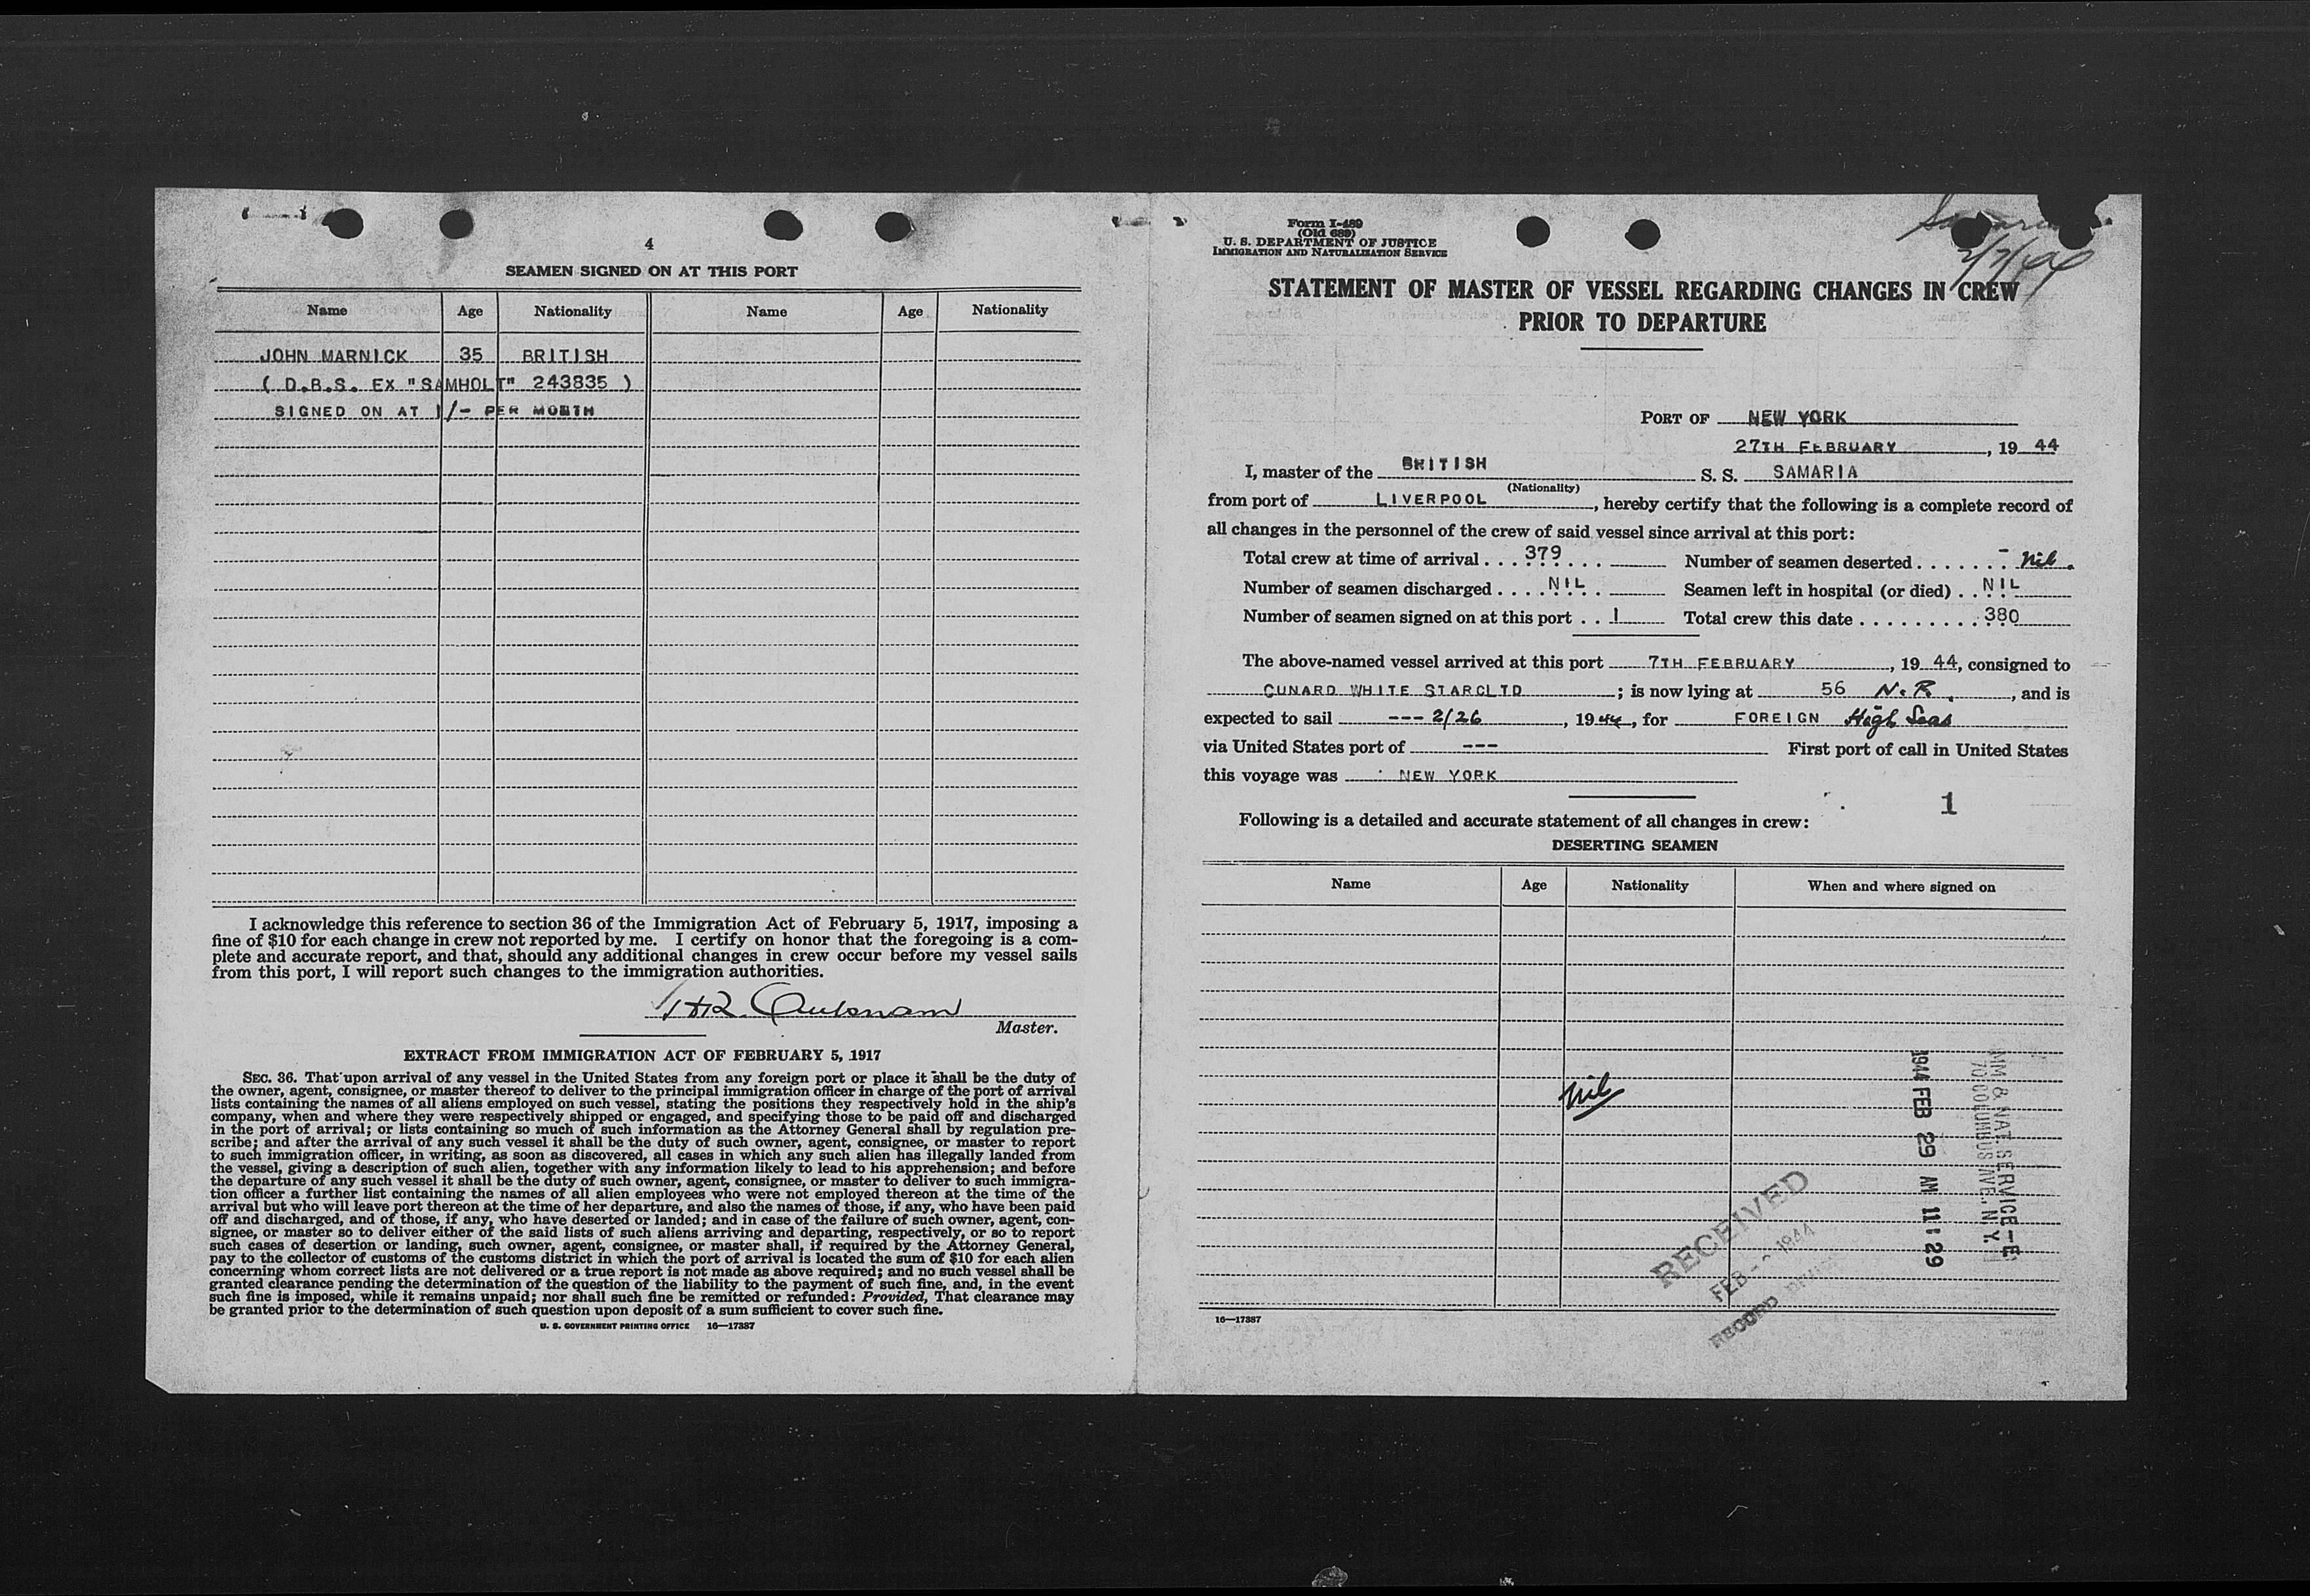 4
SEAMEN SIGNED ON AT THIS PORT
Name Age Nationality Name Age Nationality
JOHN MARNICK 35 BRITISH
( D.B.S. EX "SAMHOLT" 243835 )
SIGNED ON AT 1/- PER MONTH
I acknowledge this reference to section 36 of the Immigration Act of February 5, 1917, imposing a
fine of $10 for each change in crew not reported by me. I certify on honor that the foregoing is a com-
plete and accurate report, and that, should any additional changes in crew occur before my vessel sails
from this port, I will report such changes to the immigration authorities.
Master.
EXTRACT FROM IMMIGRATION ACT OF FEBRUARY 5, 1917
SEC. 36. That upon arrival of any vessel in the United States from any foreign port or place it shall be the duty of
the owner, agent, consignee, or master thereof to deliver to the principal immigration officer in charge of the port of arrival
lists containing the names of all aliens employed on such vessel, stating the positions they respectively hold in the ship's
company, when and where they were respectively shipped or engaged, and specifying those to be paid off and discharged
in the port of arrival; or lists containing so much of such information as the Attorney General shall by regulation pre-
scribe; and after the arrival of any such vessel it shall be the duty of such owner, agent, consignee, or master to report
to such immigration officer, in writing, as soon as discovered, all cases in which any such alien has illegally landed from
the vessel, giving a description of such alien, together with any information likely to lead to his apprehension; and before
the departure of any such vessel it shall be the duty of such owner, agent, consignee, or master to deliver to such immigra-
tion officer a further list containing the names of all alien employees who were not employed thereon at the time of the
arrival but who will leave port thereon at the time of her departure, and also the names of those, if any, who have been paid
off and discharged, and of those, if any, who have deserted or landed; and in case of the failure of such owner, agent, con-
signee, or master so to deliver either of the said lists of such aliens arriving and departing, respectively, or so to report
such cases of desertion or landing, such owner, agent, consignee, or master shall, if required by the Attorney General,
pay to the collector of customs of the customs district in which the port of arrival is located the sum of $10 for each alien
concerning whom correct lists are not delivered or a true report is not made as above required; and no such vessel shall be
granted clearance pending the determination of the question of the liability to the payment of such fine, and, in the event
such fine is imposed, while it remains unpaid; nor shall such fine be remitted or refunded: Provided, That clearance may
be granted prior to the determination of such question upon deposit of a sum sufficient to cover such fine.
U. S. GOVERNMENT PRINTING OFFICE 16—17387
Form I-489
(Old 689)
U. S. DEPARTMENT OF JUSTICE
IMMIGRATION AND NATURALIZATION SERVICE
Samaria
2/7/44
STATEMENT OF MASTER OF VESSEL REGARDING CHANGES IN CREW
PRIOR TO DEPARTURE
PORT OF NEW YORK
27TH FEBRUARY, 19 44
I, master of the BRITISH S. S. SAMARIA
(Nationality)
from port of LIVERPOOL, hereby certify that the following is a complete record of
all changes in the personnel of the crew of said vessel since arrival at this port:
Total crew at time of arrival . . . 379 Number of seamen deserted . . . . . . . - Nil.
Number of seamen discharged . . . . NIL Seamen left in hospital (or died) . . NIL
Number of seamen signed on at this port . . 1 Total crew this date . . . . . . . . . . 380
The above-named vessel arrived at this port 7TH FEBRUARY, 19 44, consigned to
CUNARD WHITE STARCLTD; is now lying at 56 N.R., and is
expected to sail --- 2/26, 1944, for FOREIGN High Seas
via United States port of --- First port of call in United States
this voyage was NEW YORK
1
Following is a detailed and accurate statement of all changes in crew:
DESERTING SEAMEN
Name Age Nationality When and where signed on
Nil
1944 FEB 29 AM 11 29
IMM & NAT. SERVICE-E
70 COLUMBUS AVE., N.Y.
RECEIVED
FEB 1944
RECORD
16—17387